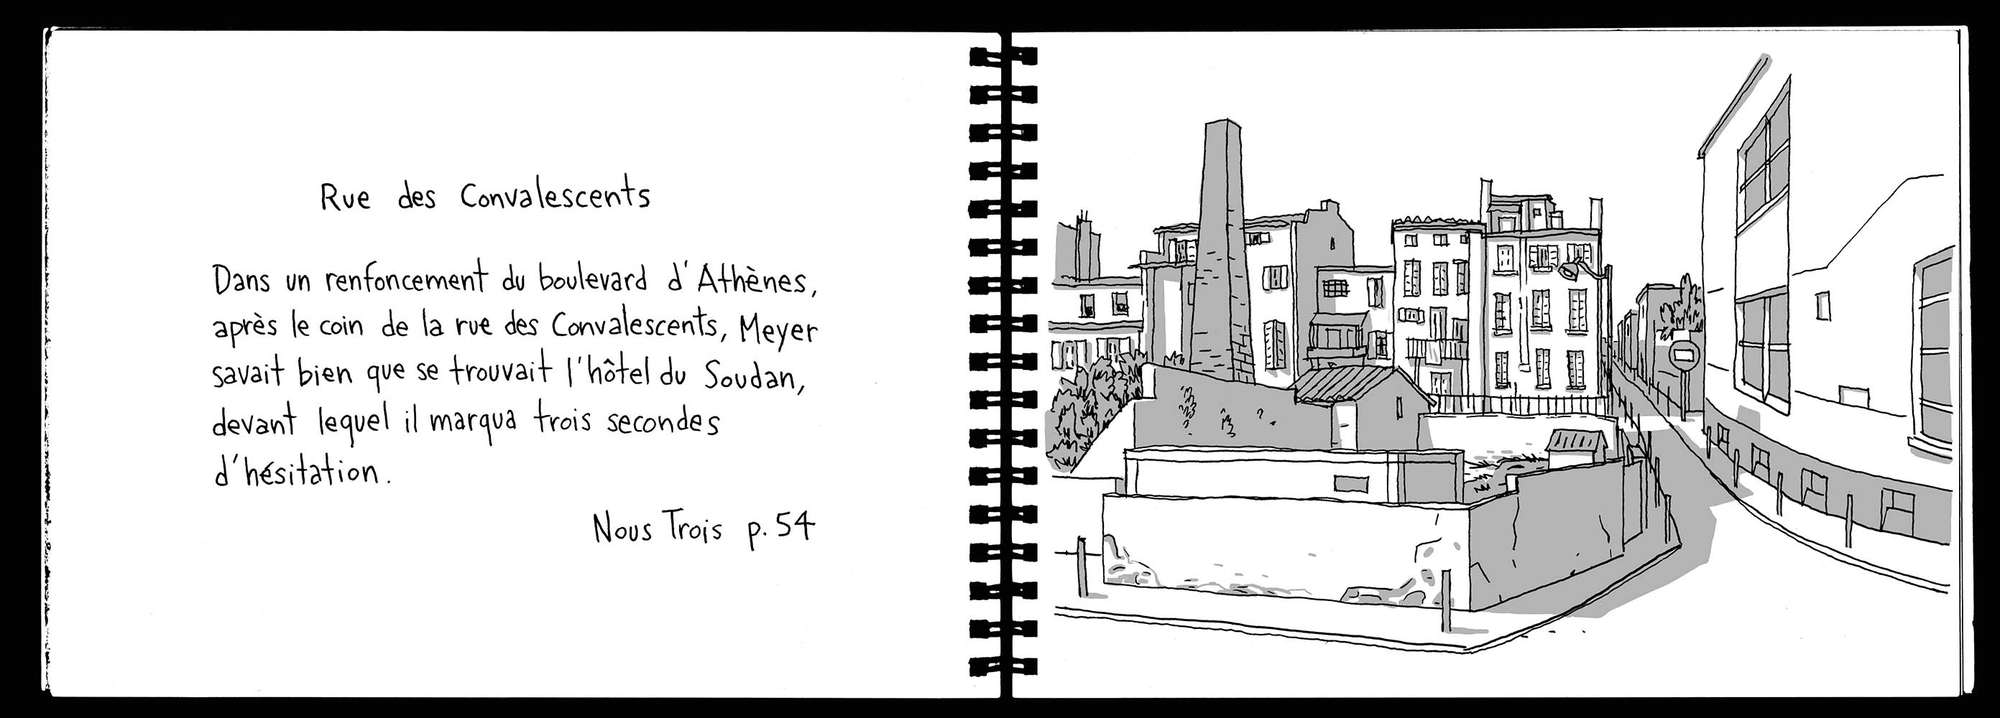 Rue des Convalescents
Dans un renfoncement du boulevard d'Athènes,
après le coin de la rue des Convalescents, Meyer
savait bien que se trouvait l'hôtel du Soudan,
devant lequel il marqua trois secondes
d'hésitation.
Nous Trois p. 54